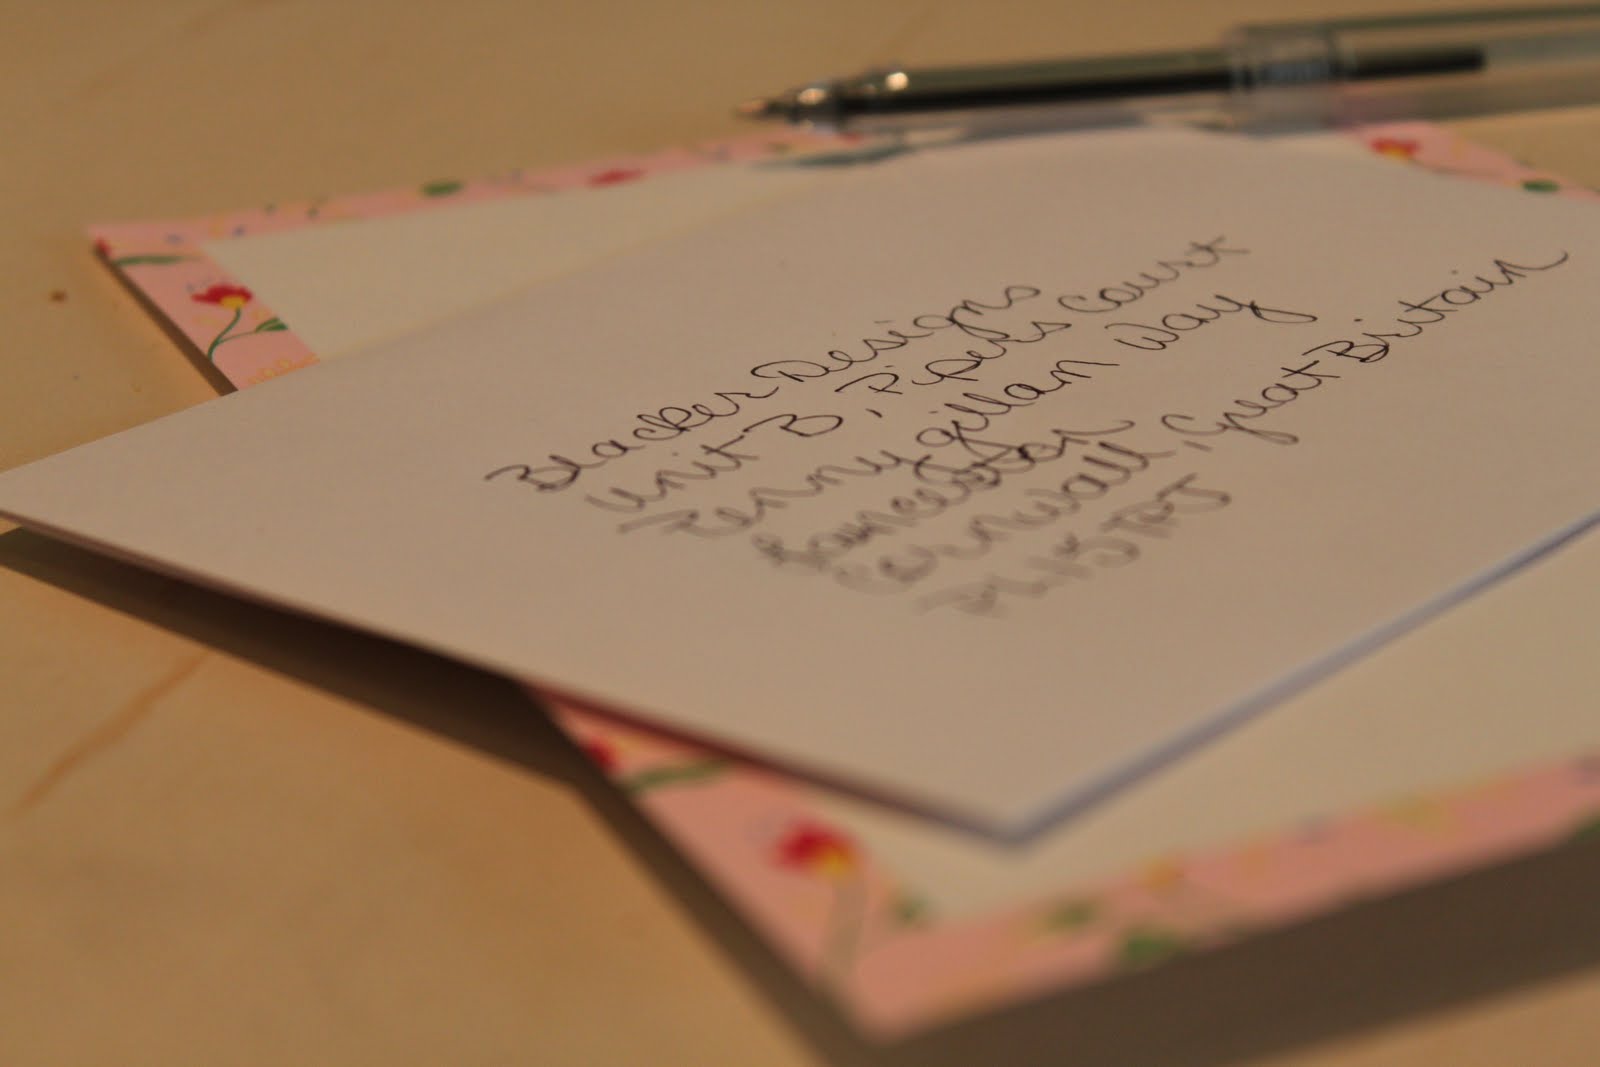 Blacker Designs
Unit B, Pipers Court
Pennygillan Way
Launceston
Cornwall, Great Britain
PL15 7PJ